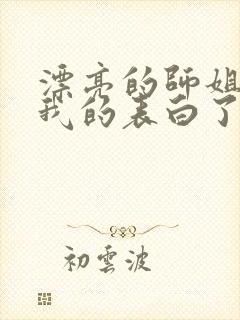 漂亮的師姐
我的表白了
初雲波